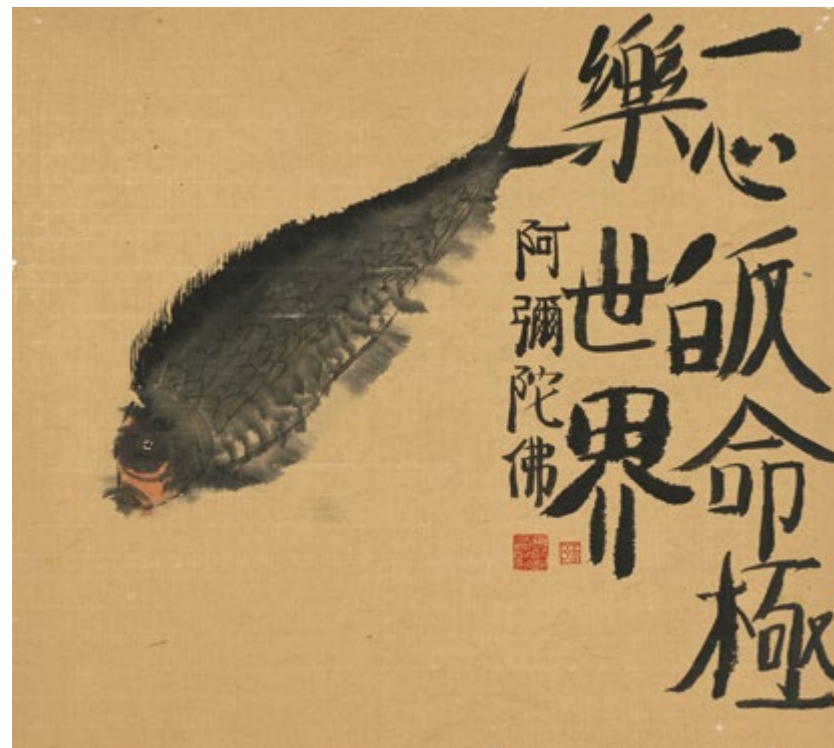 一心皈命極
樂世界
阿彌陀佛